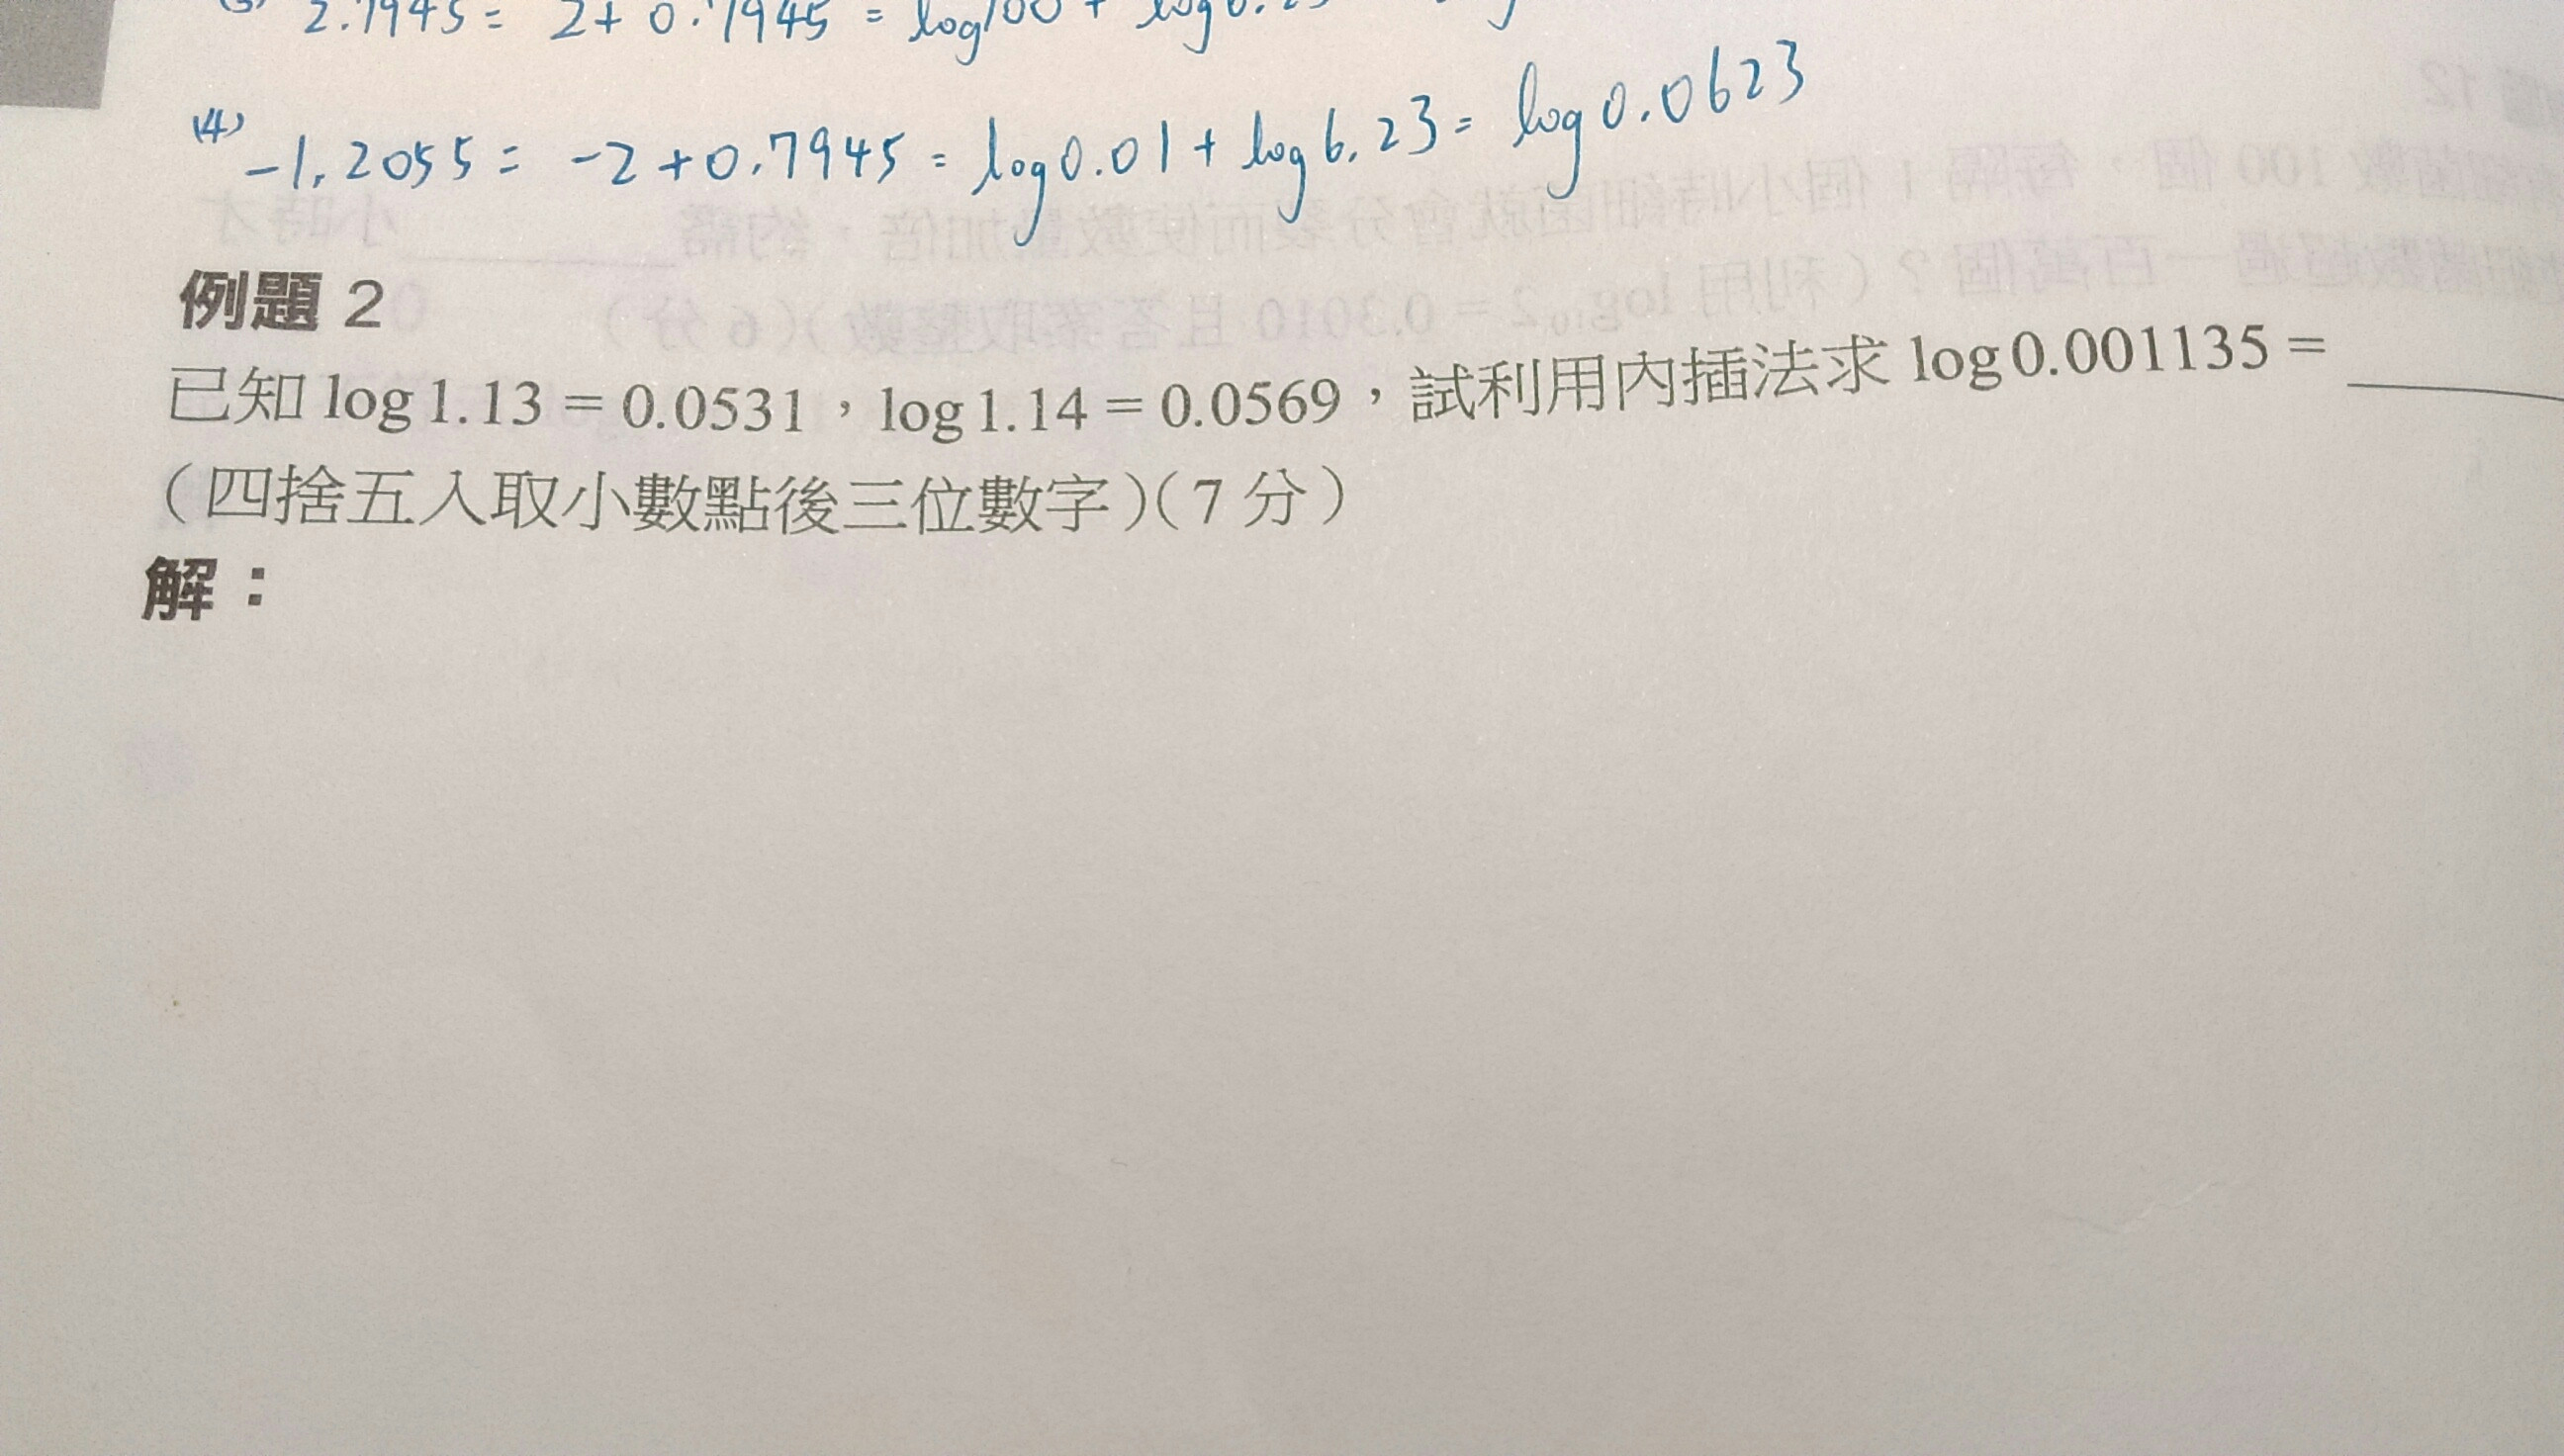 2.7945 = 2 + 0.7945 = log100 + log6.23
(4) -1.2055 = -2 + 0.7945 = log0.01 + log6.23 = log0.0623
例題 2
已知 log1.13 = 0.0531，log1.14 = 0.0569，試利用內插法求 log0.001135 = ______
（四捨五入取小數點後三位數字）（7 分）
解：